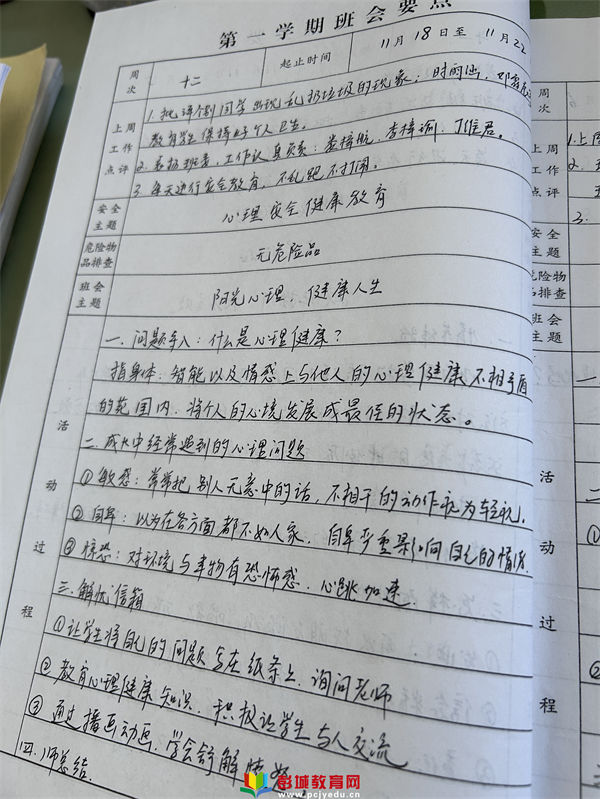 第一学期班会要点
周次 十二 起止时间 11月18日至11月22
上周工作点评
1. 批评个别同学出现乱扔垃圾的现象：时雨涵、邓
教育学生保持好个人卫生。
2. 表扬班委，工作认真负责：娄梓航、李梓瑜、丁佳君。
3. 每天进行安全教育，不乱跑不打闹。
安全主题 心理安全健康教育
危险物品排查 无危险品
班会主题 阳光心理，健康人生
活动过程
一、问题导入：什么是心理健康？
指身体、智能以及情感上与他人的心理健康不相矛盾
的范围内，将个人的心境发展成最佳的状态。
二、成长中经常遇到的心理问题
①敏感：常常把别人无意中的话，不相干的动作视为轻视。
②自卑：以为在各方面都不如人家，自卑严重影响自己的情绪。
③惊恐：对环境与事物有恐怖感，心跳加速。
三、解忧信箱
①让学生将自己的问题写在纸条上，询问老师
②教育心理健康知识，积极让学生与人交流
③通过播画动画，学会舒解情
四、师总结。
周次
上周工作点评
1.上
2.
3.
安全主题
危险物品排查
班会主题
活动过程
一、
二、
彭城教育网
www.pcjyedu.cn